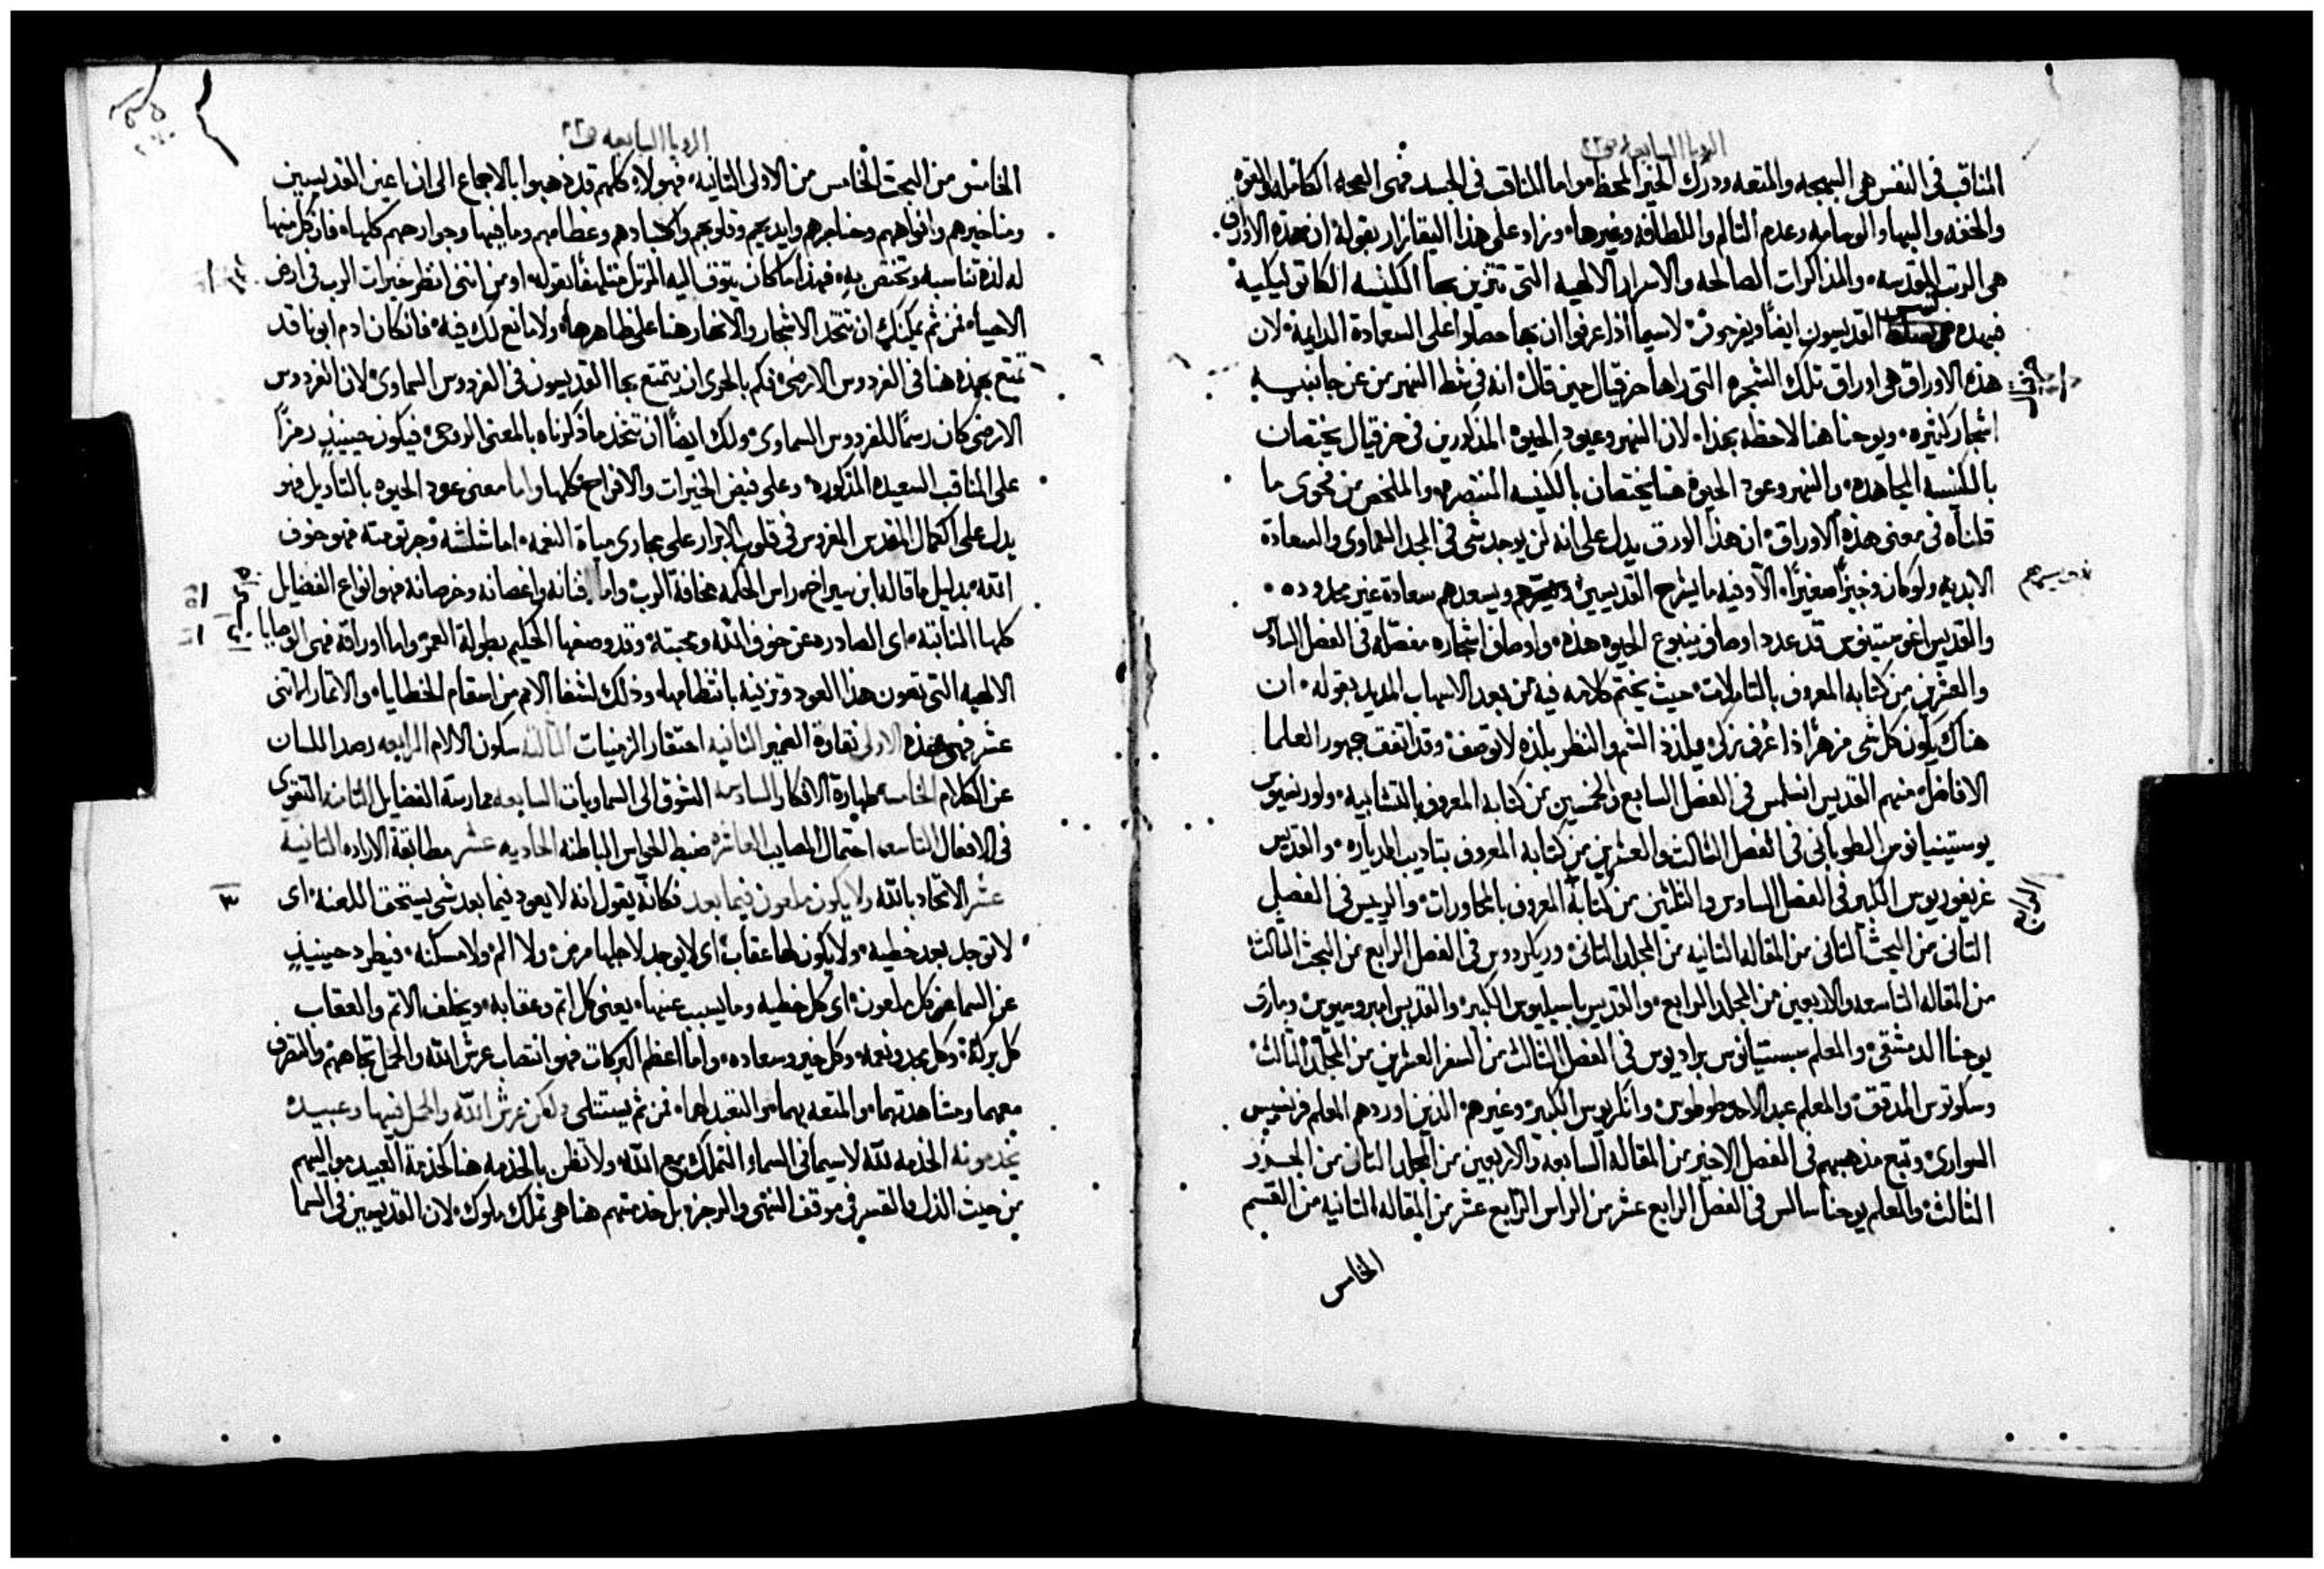 الرويا السابعه ف٢٢
المناقب في النفس هي البهجه والمتعه ودرك الخير المحظ واما المناقب في الجسد فهي الصحه الكامله والقوه
والخفه والبها والوسامه وعدم التالم واللطافه وغيرها، وزاد على هذا اليقازار بقوله ان هذه الاوراق
هي الرتب المقدسه، والمذاكرات الصالحه والاسرار الالهيه التي تتزين بها الكنيسه الكاتوليكية
فبهذه القديسون ايضاً ويفرحون لاسيما اذا عرفوا ان بها حصلوا على السعادة الدايمة، لان
هذه الاوراق هي اوراق تلك الشجره التي راها حزقيال حين قال انه في شط النهر من عن جانبيه
اشجار كثيره، ويوحنا هنا لاحظه بهذا، لان النهر وعود الحيوة المذكورين في حزقيال يختصان
بالكنيسه المجاهده، والنهر وعود الحيوة هنا يختصان بالكنيسه المنتصره والملخص من فحوى ما
قلناه في معنى هذه الاوراق، ان هذا الورق يدل على انه لن يوجد شي في المجد السماوي والسعادة
الابديه ولو كان وجيزاً صغيراً، الا وفيه ما يشرح القديسين ويسرهم ويسعدهم سعادة غير محدوده
والقديس اغوستينوس قد عدد اوصاف ينبوع الحيوه هذه، واوصاف اشجاره مفصله في الفصل السادس
والعشرين من كتابه المعروف بالتاملات، حيث يختم كلامه فيه من بعد الاسهاب المديد بقوله، ان
هناك يكون كل شي مزهراً اذا عرف زكي فيلذذ الشم والنظر بلذه لا توصف، وقد اتفق جمهور العلما
الافاضل منهم القديس انسلمس في الفصل السابع والخمسين من كتابه المعروف بالتشابيه، ولورنسيوس
يوستينيانوس الطوباني في الفصل الثالث والعشرين من كتابه المعروف بتاديب الديارة، والقديس
غريغوريوس الكبير في الفصل السادس والثلثين من كتابه المعروف بالمحاورات، والريس في الفصل
الثاني من البحث الثاني من المقاله الثانيه من المجلد الثاني، وريكردوس في الفصل الرابع من البحث الثالث
من المقاله التاسعه والاربعين من المجلد الرابع، والقديس باسيليوس الكبير، والقديس امبروسيوس، وماري
يوحنا الدمشقي، والمعلم سبستيانوس براديوس في الفصل الثالث من السفر العشرين من المجلد الثالث
وسكوتوس المدقق، والمعلم عبد الاحد وطوس، وانكريوس الكبير، وغيرهم الذين اوردهم المعلم فرنسيس
السواري، وتبع مذهبهم في الفصل الاخير من المقاله السابعه والاربعين من المجلد الثاني من الجزو
الثالث، والمعلم يوحنا سالس في الفصل الرابع عشر من الراس الرابع عشر من المقاله الثانيه من القسم
الخامس
الرابع
الرويا السابعه ف٢٢
الخامس من البحث الخامس من الاولى الثانيه، فهولاء كلهم قد ذهبوا بالاجماع الى ان اعين القديسين
ومناخيرهم وافواههم وحناجرهم وايديهم وقلوبهم واكبادهم وعظامهم وما فيها وجوارحهم كلها، فان كل منها
له لذة تناسبه وتختص به، فهذا ما كان يتوق اليه المرتل متلهفاً بقوله، اومن انني انظر خيرات الرب في ارض
الاحيا، فمن ثم يمكنك ان تتخذ الاشجار والانهار هنا على ظاهرها، ولا مانع لك فيه، فان كان ادم ابونا قد
تمتع بهذه هنا في الفردوس الارضي، فكم بالحري ان يتمتع بها القديسون في الفردوس السماوي، لان الفردوس
الارضي كان رسماً للفردوس السماوي، ولك ايضاً ان تتخذ ما ذكرناه بالمعنى الروحي، فيكون حينيذٍ رمزاً
على المناقب السعيده المذكوره، وعلى فيض الخيرات والافراح كلها، واما معنى عود الحيوه بالتاويل فهو
يدل على الكمال المقدس المغروس في قلوب الابرار على مجاري مياة النعمه، اما شلشه وجرثومته فهو خوف
الله بدليل ما قاله ابن سيراخ، راس الحكمه مخافة الرب، واما افنانه واغصانه وخرصانه فهو انواع الفضايل
كلها النابته، اي الصادره عن خوف الله ومحبته، وقد وصفها الحكيم بطولة العمر، واما اوراقه فهي الوصايا
الالهيه التي تصون هذا العود وتزينه بانتظامها، وذلك لشفا الامم من اسقام الخطايا، والاثمار الاثني
عشر فهي هذه الاولى نقاوة الضمير الثانيه احتقار الزمنيات الثالثه سكون الالام الرابعه رصد اللسان
عن الكلام الخامسه طهارة الافكار السادسه الشوق الى السماويات السابعه ممارسة الفضايل الثامنه التقوى
في الافعال التاسعه احتمال المصايب العاشره ضبط الحواس الباطنه الحاديه عشر مطابقة الاراده الثانية
عشر الاتحاد بالله ولا يكون ملعون فيما بعد فكانه يقول انه لا يعود فيما بعد شي يستحق اللعنه، اي
لا توجد بعد خطيه، ولا يكون لها عقاب اي لا يوجد لاجلها مرض ولا الم ولا مسكنه، فيطرد حينيذٍ
عن السما عن كل ملعون، اي كل خطيه وما يسبب عنها، يعني كل اثم وعقابه، ويخلف الاثم والعقاب
كل بركة، وكل مجد ونعمه، وكل خير وسعاده، واما اعظم البركات فهو انتصاب عرش الله والحمل تجاههم، والتصرف
معهما ومشاهدتهما، والمتعه بهما، والتعبد لهما، فمن ثم يستتلي ولكن عرش الله والحمل فيها وعبيده
يخدمونه الخدمه لله لاسيما في السما، والتملك مع الله، ولا تظن بالخدمه هنا كخدمة العبيد مواليهم
من حيث الذل والقسر في موقف النهي والزجره بل خدمتهم هنا هي تملك ملوك، لان القديسين في السما
٣